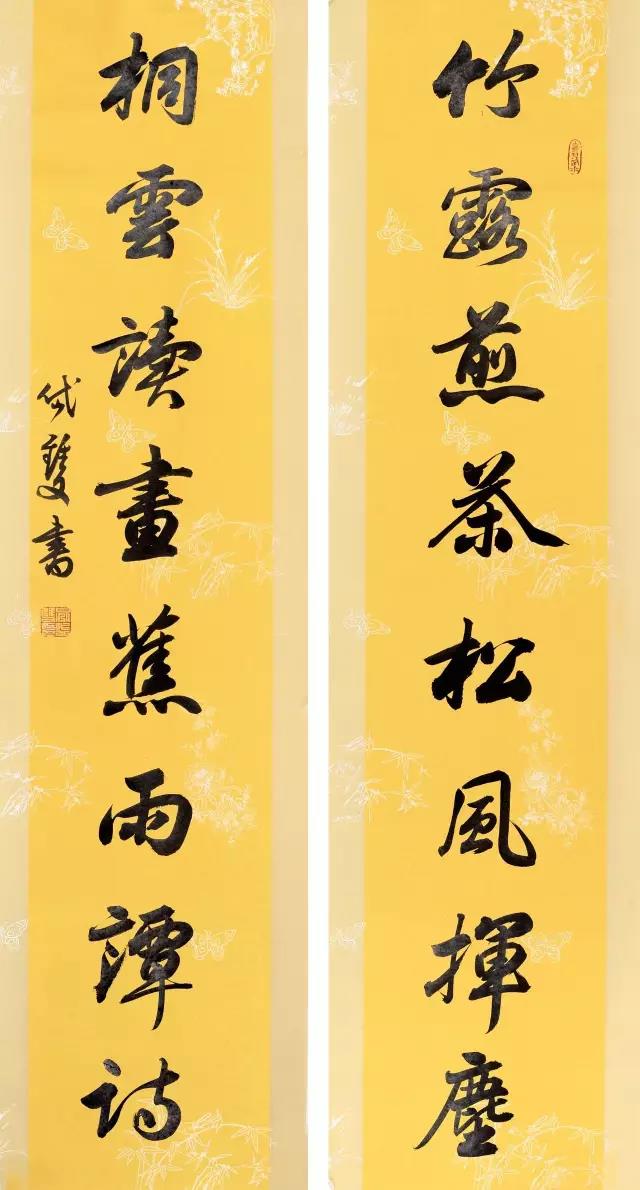 竹露煎茶松風揮麈
桐雲讀畫蕉雨譚詩
岱雙書